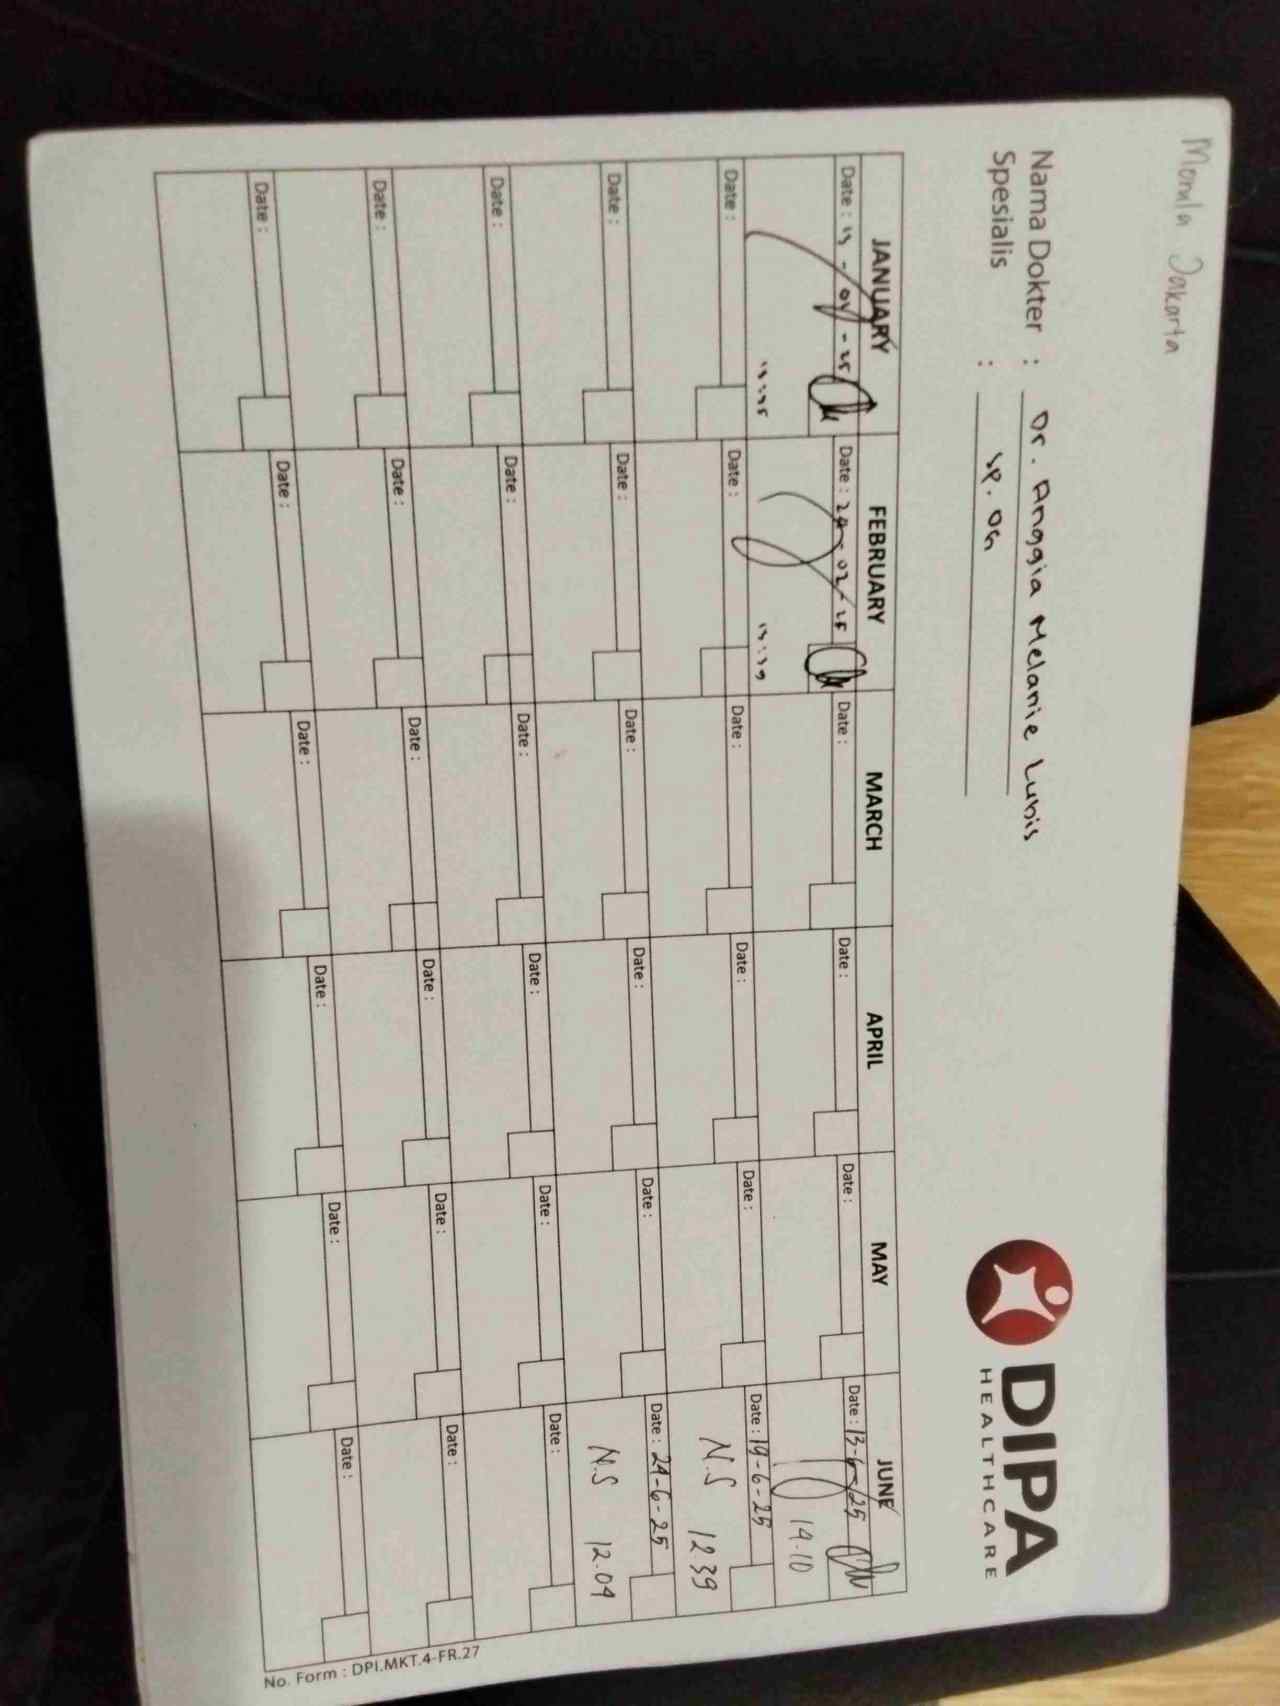 Morula Jakarta
Nama Dokter : Dr. Anggia Melanie Lubis
Spesialis : Sp. OG
DIPA
HEALTHCARE
JANUARY FEBRUARY MARCH APRIL MAY JUNE
Date : Date : 24-02-25 Date : Date : Date : Date : 13-6-25
14.10
Date : Date : Date : Date : Date : Date : 19-6-25
N.S 12.39
Date : Date : Date : Date : Date : Date : 24-6-25
N.S 12.04
Date : Date : Date : Date : Date : Date :
Date : Date : Date : Date : Date : Date :
Date : Date : Date : Date : Date : Date :
No. Form : DPI.MKT.4-FR.27